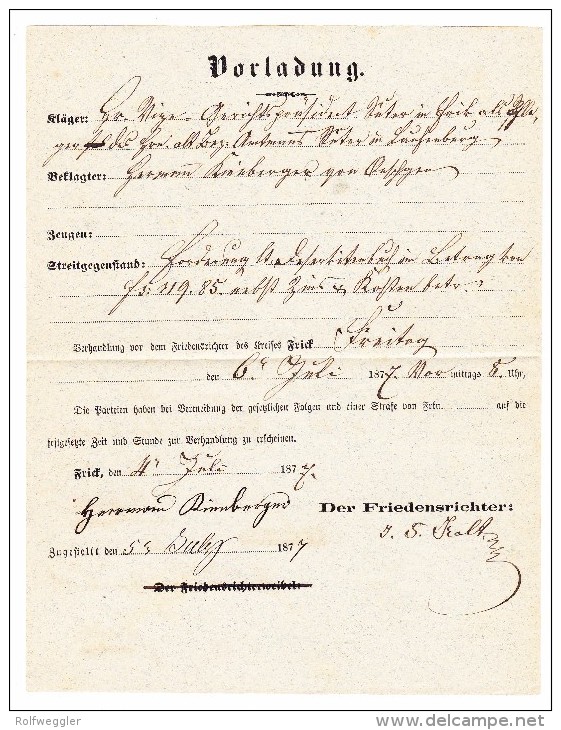 Vorladung.
Kläger: Hr. Vize-Gerichtspräsident Suter in Frick als
des Hrn. alt Bez. Amtmann Suter in Laufenburg
Beklagter: Herman Kienberger von Oeschgen
Zeugen:
Streitgegenstand: Forderung lt. im Betrag von
frs. 119.85 nebst Zins & Kosten betr.
Verhandlung vor dem Friedensrichter des Kreises Frick Freitag
den 6t Juli 1877 Vormittags 8 Uhr,
Die Parteien haben bei Vermeidung der gesetzlichen Folgen und einer Strafe von Frkn. auf die
festgesetzte Zeit und Stunde zur Verhandlung zu erscheinen.
Frick, den 4t Juli 1877.
Herrmand Kienberger Der Friedensrichter:
Zugestellt den 5t July 1877
Der Friedensrichterweibel:
Rolfweggler
delcampe.net